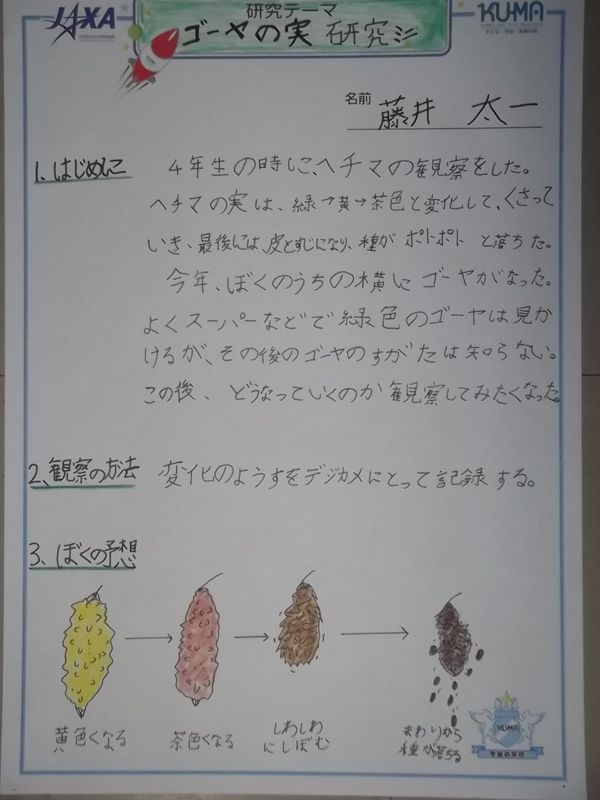 JAXA
研究テーマ
KU-MA
ゴーヤの実 研究
名前 藤井 太一
1、はじめに
4年生の時に、ヘチマの観察をした。
ヘチマの実は、緑→黄→茶色と変化して、くさって
いき、最後には、皮とすじになり、種がポトポトと落ちた。
今年、ぼくのうちの横にゴーヤがなった。
よくスーパーなどで緑色のゴーヤは見か
けるが、その後のゴーヤのすがたは知らない。
この後、どうなっていくのか観察してみたくなった。
2、観察の方法 変化のようすをデジカメにとって記録する。
3、ぼくの予想
黄色くなる
茶色くなる
しわしわ
にしぼむ
まわりから
種が落ちる
KU-MA
宇宙の学校